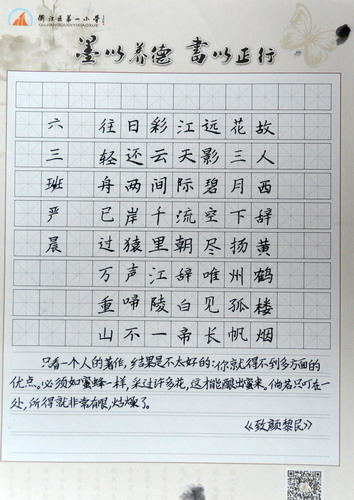 衢江区第一小学
QUJIANGQUDIYIXIAOXUE
墨以养德 書以正行
故人西辞黄鹤楼烟
花三月下扬州孤帆
远影碧空尽唯见长
江天际流朝辞白帝
彩云间千里江陵一
日还两岸猿声啼不
往轻舟已过万重山
六三班严晨
只看一个人的著作，结果是不太好的：你就得不到多方面的
优点。必须如蜜蜂一样，采过许多花，这才能酿出蜜来，倘若只叮在一
处，所得就非常有限，枯燥了。
《致颜黎民》